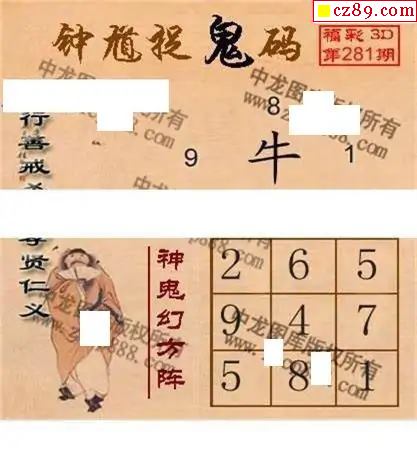 cz89.com
钟馗捉鬼码
福彩 3D
第281期
行善戒
8
9
牛
1
尊贤仁义
神鬼幻方阵
2 6 5
9 4 7
5 8 1
中龙图库版权所有